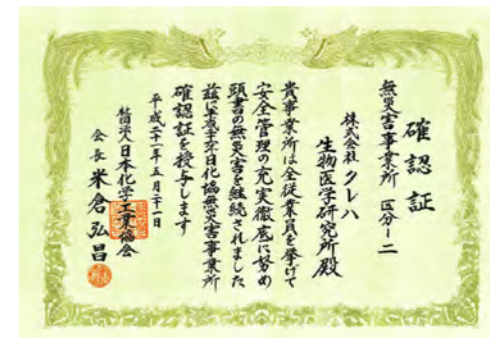 確認証
無災害事業所 区分Ⅰ－二
株式会社 クレハ
生物医学研究所殿
貴事業所は全従業員を挙げて
安全管理の充実徹底に努め
頭書の無災害を継続されました
茲に
日化協無災害事業所
確認証を授与します
平成二十一年五月二十一日
社団法人日本化学工業協会
会長 米倉弘昌